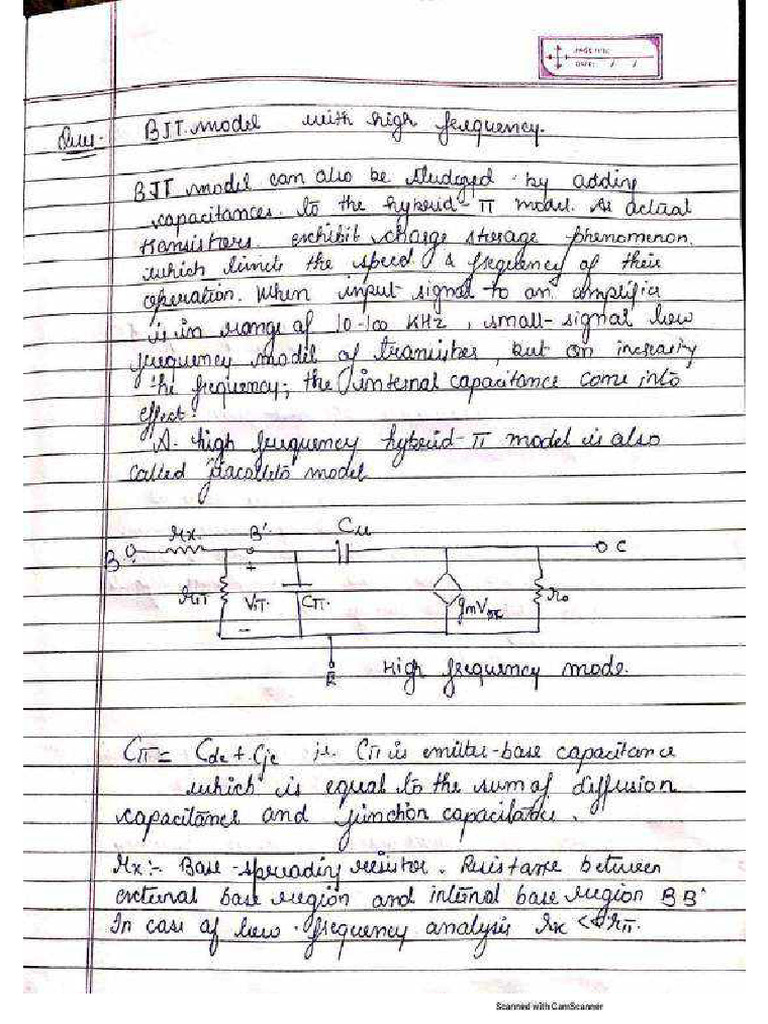 PAGE NO.
DATE: / /
Ques. BJT model with high frequency.
BJT model can also be studyed by adding
capacitances to the hybrid-π model. As actual
transistors exhibit charge storage phenomenon.
which limits the speed & frequency of their
operation. When input signal to an amplifier
is in range of 10-100 KHz, small-signal low
frequency model of transistor, but on increasing
the frequency; the internal capacitance come into
effect.
A high frequency hybrid-π model is also
called model
rx B' Cu
B C
+
rπ Vπ Cπ gmVπ ro
-
E High frequency mode.
Cπ = Cde + Cje ie. Cπ is emitter-base capacitance
which is equal to the sum of diffusion
capacitance and junction capacitance.
rx:- Base-spreading resistor. Resistance between
external base region and internal base region BB'
In case of low-frequency analysis rx << rπ.
Scanned with CamScanner